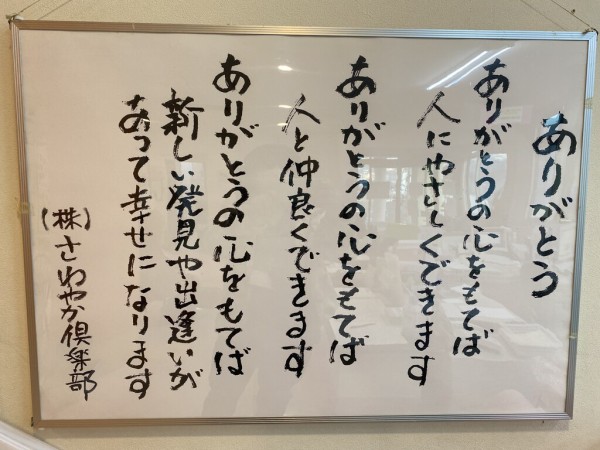 ありがとう
ありがとうの心をもてば
人にやさしくできます
ありがとうの心をもてば
人と仲良くできます
ありがとうの心をもてば
新しい発見や出逢いが
あって幸せになります
(株)さわやか倶楽部